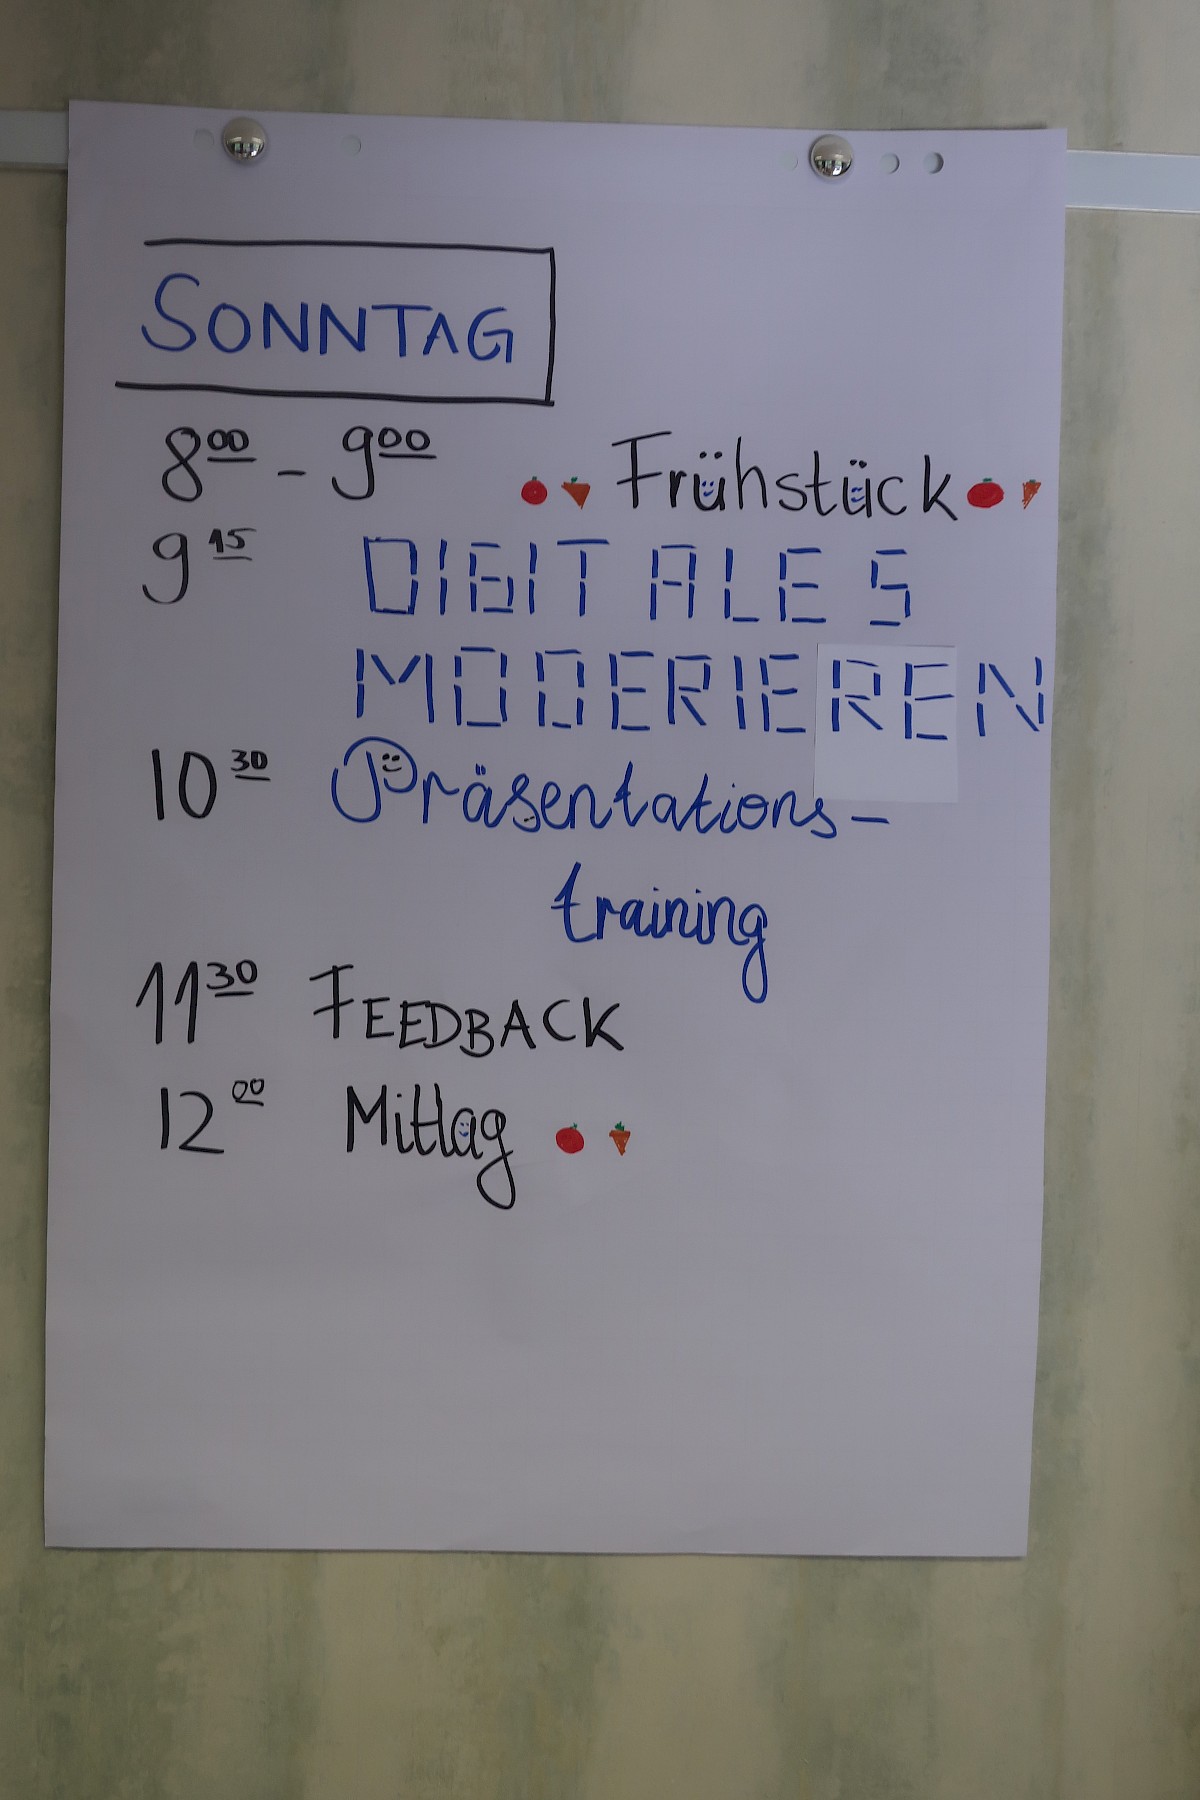 SONNTAG
8⁰⁰ - 9⁰⁰ Frühstück
9¹⁵ DIGITALES
MODERIEREN
10³⁰ Präsentations-
training
11³⁰ FEEDBACK
12⁰⁰ Mittag